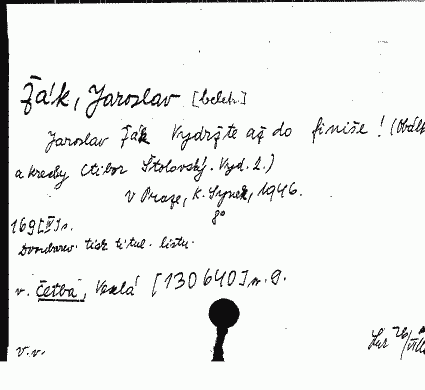 Žák, Jaroslav [beletr.]
Jaroslav Žák Vydržte až do finiše! (Obálk
a kresby Ctibor Štolovský. Vyd. 2.)
V Praze, K. Synek, 1946.
8°
169 [IV] s.
Dvoubarev. tisk titul. listu.
v. Četba, Veselá [130640] n. 9.
V. v.